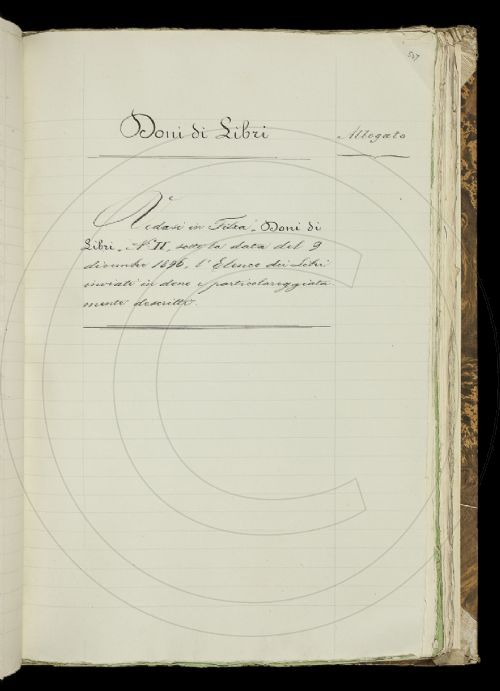 527
Doni di Libri
Allegato
Vedasi in Filza "Doni di
Libri" N° II, sotto la data del 9
dicembre 1896, l'Elenco dei Libri
inviati in dono e particolareggiata
mente descritti.